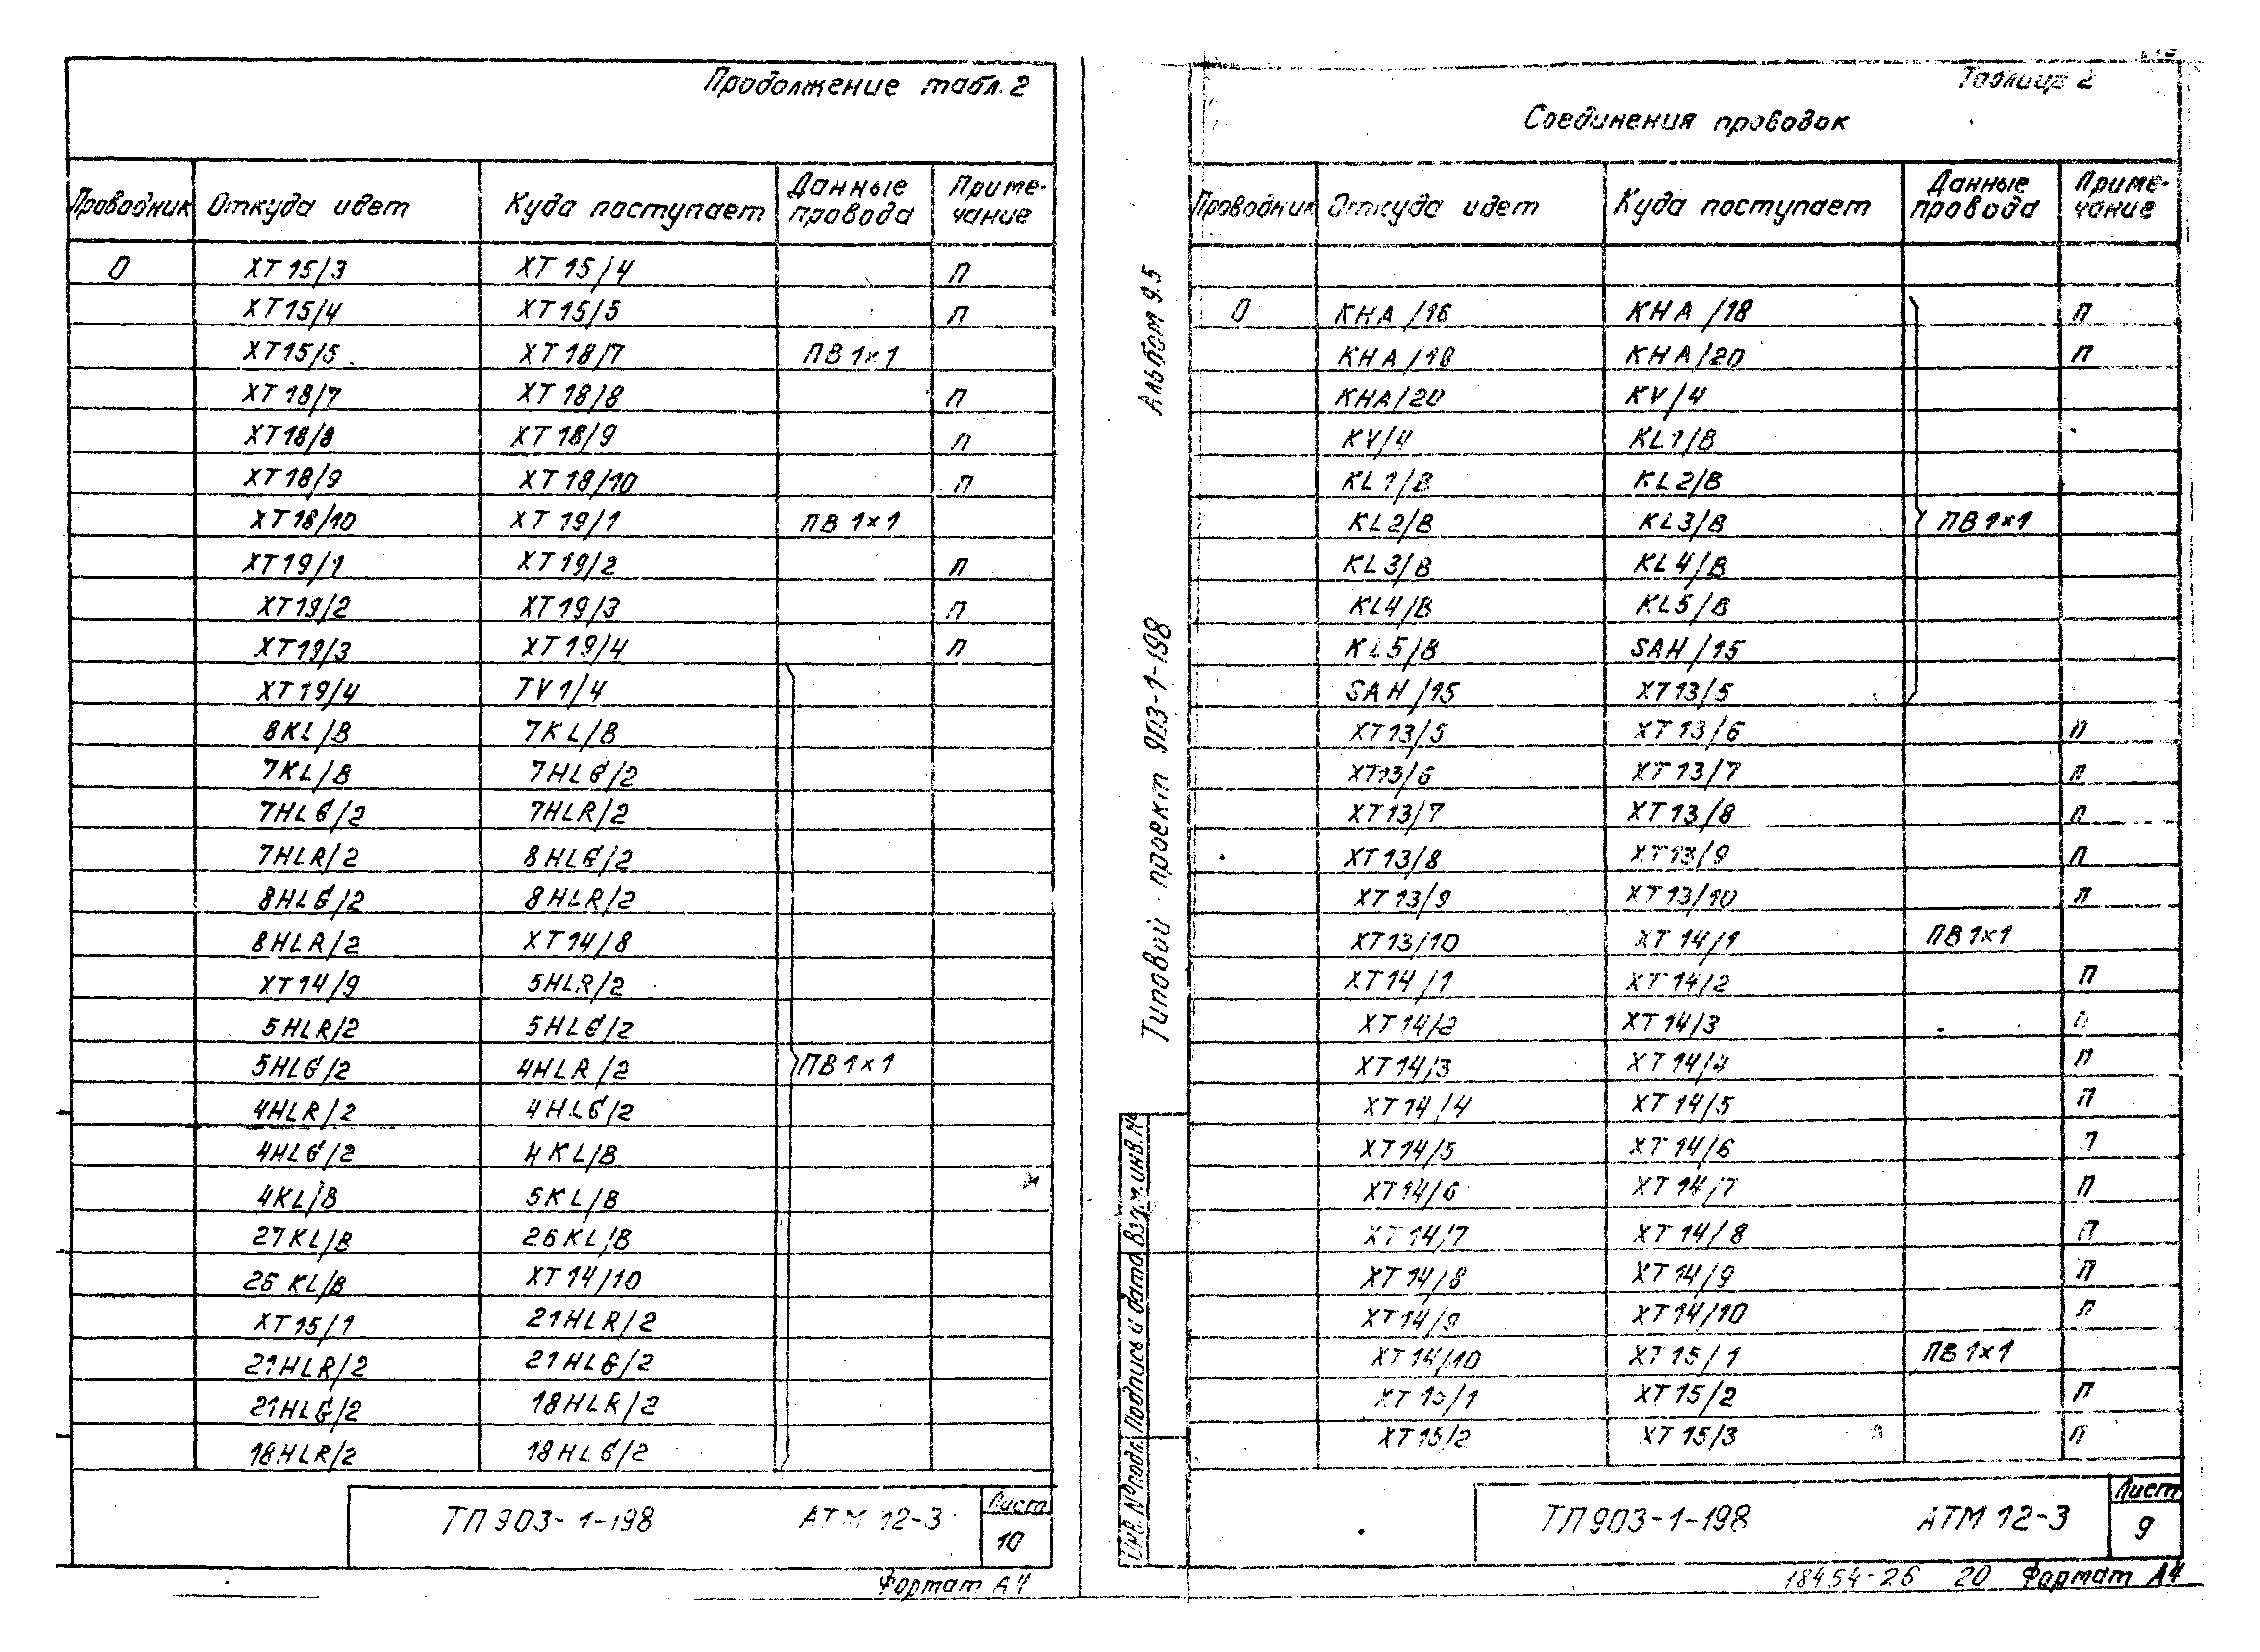 Продолжение табл. 2
Проводник Откуда идет Куда поступает Данные провода Приме-чание
0 XT15/3 XT15/4 П
XT15/4 XT15/5 П
XT15/5 XT18/7 ПВ 1×1
XT18/7 XT18/8 П
XT18/8 XT18/9 П
XT18/9 XT18/10 П
XT18/10 XT19/1 ПВ 1×1
XT19/1 XT19/2 П
XT19/2 XT19/3 П
XT19/3 XT19/4 П
XT19/4 TV1/4
8KL/B 7KL/B
7KL/B 7HLG/2
7HLG/2 7HLR/2
7HLR/2 8HLG/2
8HLG/2 8HLR/2
8HLR/2 XT14/8
XT14/9 5HLR/2
5HLR/2 5HLG/2
5HLG/2 4HLR/2 ПВ 1×1
4HLR/2 4HLG/2
4HLG/2 4KL/B
4KL/B 5KL/B
27KL/B 26KL/B
26KL/B XT14/10
XT15/1 21HLR/2
21HLR/2 21HLG/2
21HLG/2 18HLR/2
18HLR/2 18HLG/2
ТП 903-1-198 АТМ 12-3 Лист 10
Формат А4
Альбом 9.5
Типовой проект 903-1-198
Инв. № подл. Подпись и дата Взам. инв. №
Таблица 2
Соединения проводок
Проводник Откуда идет Куда поступает Данные провода Приме-чание
0 KHA/16 KHA/18 П
KHA/18 KHA/20 П
KHA/20 KV/4
KV/4 KL1/B
KL1/B KL2/B
KL2/B KL3/B ПВ 1×1
KL3/B KL4/B
KL4/B KL5/B
KL5/B SAH/15
SAH/15 XT13/5
XT13/5 XT13/6 П
XT13/6 XT13/7 П
XT13/7 XT13/8 П
XT13/8 XT13/9 П
XT13/9 XT13/10 П
XT13/10 XT14/1 ПВ 1×1
XT14/1 XT14/2 П
XT14/2 XT14/3 П
XT14/3 XT14/4 П
XT14/4 XT14/5 П
XT14/5 XT14/6 П
XT14/6 XT14/7 П
XT14/7 XT14/8 П
XT14/8 XT14/9 П
XT14/9 XT14/10 П
XT14/10 XT15/1 ПВ 1×1
XT15/1 XT15/2 П
XT15/2 XT15/3 П
ТП 903-1-198 АТМ 12-3 Лист 9
18454-26 20 Формат А4